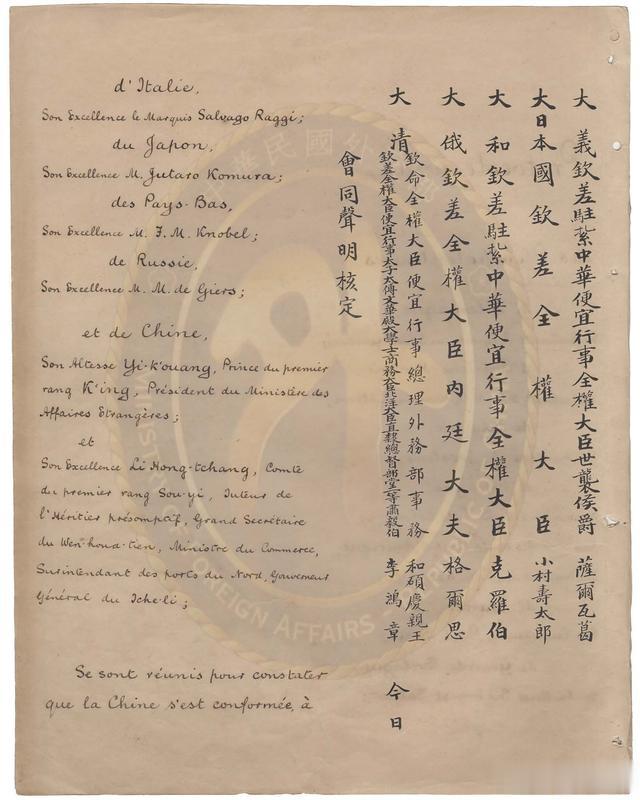 d'Italie,
Son Excellence le Marquis Salvago Raggi;
du Japon,
Son Excellence M. Jutaro Komura;
des Pays-Bas,
Son Excellence M. F. M. Knobel;
de Russie,
Son Excellence M. M. de Giers;
et de Chine,
Son Altesse Yi-K'ouang, Prince du premier
rang K'ing, Président du Ministère des
Affaires Etrangères;
et
Son Excellence Li Hong-tchang, Comte
du premier rang Sou-yi, Tuteur de
l'Héritier présomptif, Grand Secrétaire
du Wen-houa-tien, Ministre du Commerce,
Surintendant des ports du Nord, Gouverneur
Général du Tche-li;
Se sont réunis pour constater
que la Chine s'est conformée, à
大義欽差駐紮中華便宜行事全權大臣世襲侯爵薩爾瓦葛
大日本國欽差全權大臣小村壽太郎
大和欽差駐紮中華便宜行事全權大臣克羅伯
大俄欽差全權大臣內廷大夫格爾思
大清
欽命全權大臣便宜行事總理外務部事務和碩慶親王
欽差全權大臣便宜行事太子太傅文華殿大學士商務大臣北洋大臣直隸總督部堂一等肅毅伯李鴻章
今日
會同聲明核定
FOREIGN AFFAIRS